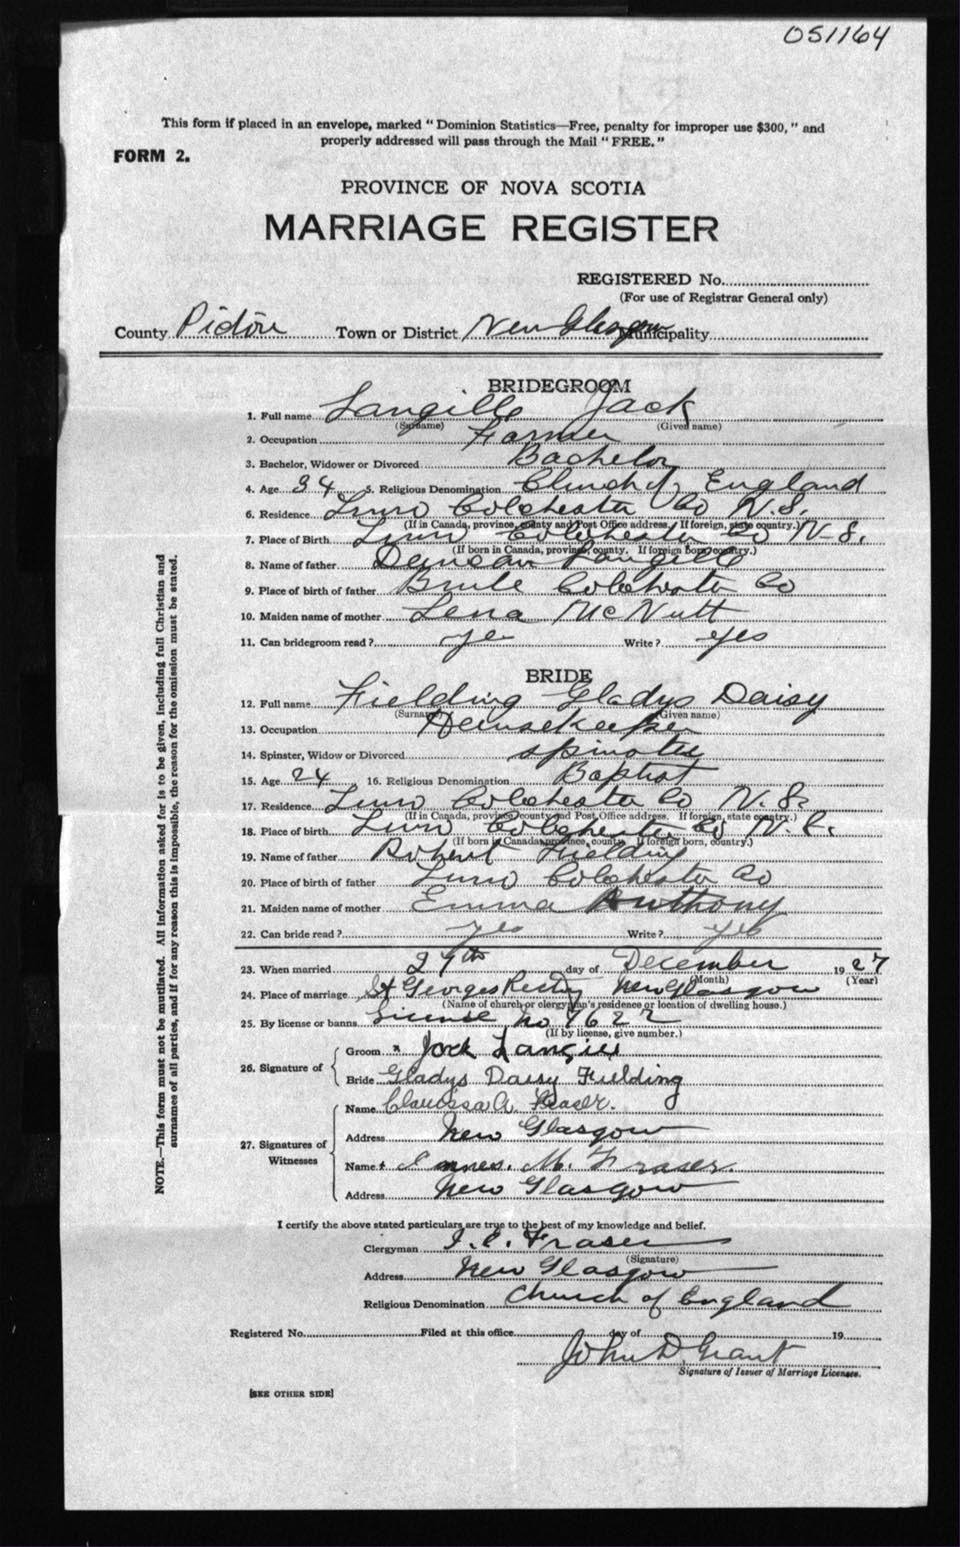 051164
This form if placed in an envelope, marked "Dominion Statistics—Free, penalty for improper use $300," and
properly addressed will pass through the Mail "FREE."
FORM 2.
PROVINCE OF NOVA SCOTIA
MARRIAGE REGISTER
REGISTERED No.
(For use of Registrar General only)
County Pictou Town or District New Glasgow Municipality
BRIDEGROOM
1. Full name Langille Jack
(Surname) (Given name)
2. Occupation Farmer
3. Bachelor, Widower or Divorced Bachelor
4. Age 34 5. Religious Denomination Church of England
6. Residence Truro Colchester Co N.S.
(If in Canada, province, county and Post Office address. If foreign, state country.)
7. Place of Birth Truro Colchester Co N.S.
(If born in Canada, province, county. If foreign born, country.)
8. Name of father Duncan Langille
9. Place of birth of father Brule Colchester Co
10. Maiden name of mother Lena McNutt
11. Can bridegroom read? yes Write? yes
BRIDE
12. Full name Fielding Gladys Daisy
(Surname) (Given name)
13. Occupation Housekeeper
14. Spinster, Widow or Divorced spinster
15. Age 24 16. Religious Denomination Baptist
17. Residence Truro Colchester Co N.S.
(If in Canada, province county and Post Office address. If foreign, state country.)
18. Place of birth Truro Colchester Co N.S.
(If born in Canada, province, county. If foreign born, country.)
19. Name of father Robert Fielding
20. Place of birth of father Truro Colchester Co
21. Maiden name of mother Emma Anthony
22. Can bride read? yes Write? yes
23. When married 29th day of December 1927
(Month) (Year)
24. Place of marriage St Georges Rectory New Glasgow
(Name of church or clergyman's residence or location of dwelling house.)
25. By license or banns License no 4622
(If by license, give number.)
26. Signature of
Groom x Jack Langill
Bride Gladys Daisy Fielding
27. Signatures of
Witnesses
Name Clarissa A. Fraser.
Address New Glasgow
Name M. Fraser
Address New Glasgow
I certify the above stated particulars are true to the best of my knowledge and belief.
Clergyman Fraser
(Signature)
Address New Glasgow
Religious Denomination Church of England
Registered No. Filed at this office day of 19
John D Grant
Signature of Issuer of Marriage Licenses.
[SEE OTHER SIDE]
NOTE.—This form must not be mutilated. All information asked for is to be given, including full Christian and
surnames of all parties, and if for any reason this is impossible, the reason for the omission must be stated.